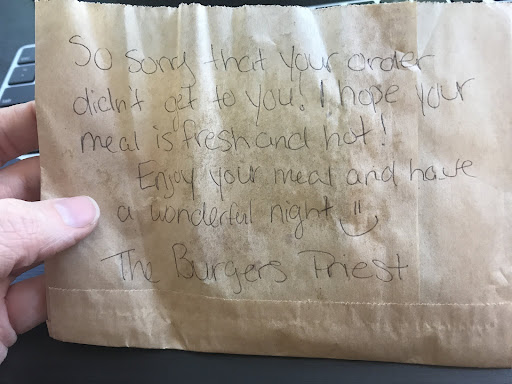 So sorry that your order
didn't get to you! I hope your
meal is fresh and hot!
Enjoy your meal and have
a wonderful night
The Burgers Priest